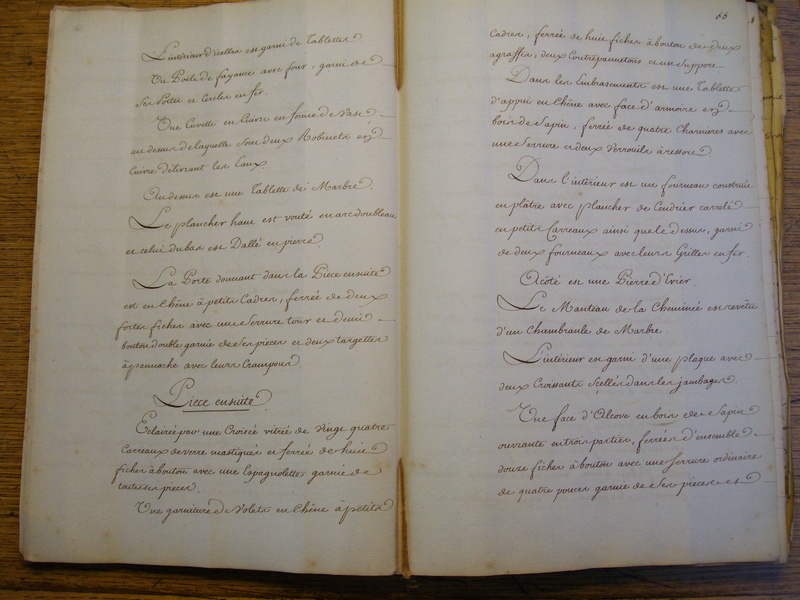 L'intérieur d'icelles est garni de Tablettes
Un Poële de fayance avec four, garni de
Ses Portes et Cercles en fer.
Une Cuvette en Cuivre en forme de Vase
au dessus de laquelle sont deux Robinets en
Cuivre délivrant les Eaux.
Au dessus est une Tablette de Marbre.
Le plancher haut est vouté en arc doubleau
et celui du bas est Dallé en pierre
La Porte donnant dans la Piece ensuite
est en Chêne à petits Cadres, ferrée de deux
fortes fiches avec une Serrure tour et demie
bouton double garnie de ses pieces et deux targettes
à panache avec leurs Crampons.
Piece ensuite
Eclairée par une Croisée vitrée de Vingt quatre
Carreaux de verre mastiqués et ferrée de huit
fiches à bouton avec une Espagnolette garnie de
toutes ses pieces.
Une garniture de Volets en Chêne à petits
55
Cadres, ferrée de huit fiches à bouton de deux
agraffes, deux Contrepannetons et un Support.
Dans les Embrasements est une Tablette
d'appui en Chêne avec face d'armoire en
bois de Sapin, ferrée de quatre Charnières avec
une Serrure et deux Verrouils à ressort
Dans l'intérieur est un fourneau construit
en plâtre avec plancher de Cendrier carrelé
en petits Carreaux ainsi que le dessus, garni
de deux fourneaux avec leurs Grilles en fer.
A côté est une Pierre d'Evier.
Le Manteau de la Cheminée est revêtu
d'un Chambranle de Marbre.
L'intérieur est garni d'une plaque avec
deux Croissants Scellés dans les jambages.
Une face d'Alcove en bois de Sapin
ouvrante en trois parties, ferrées d'ensemble
douze fiches à bouton avec une serrure ordinaire
de quatre pouces garnie de Ses pieces et